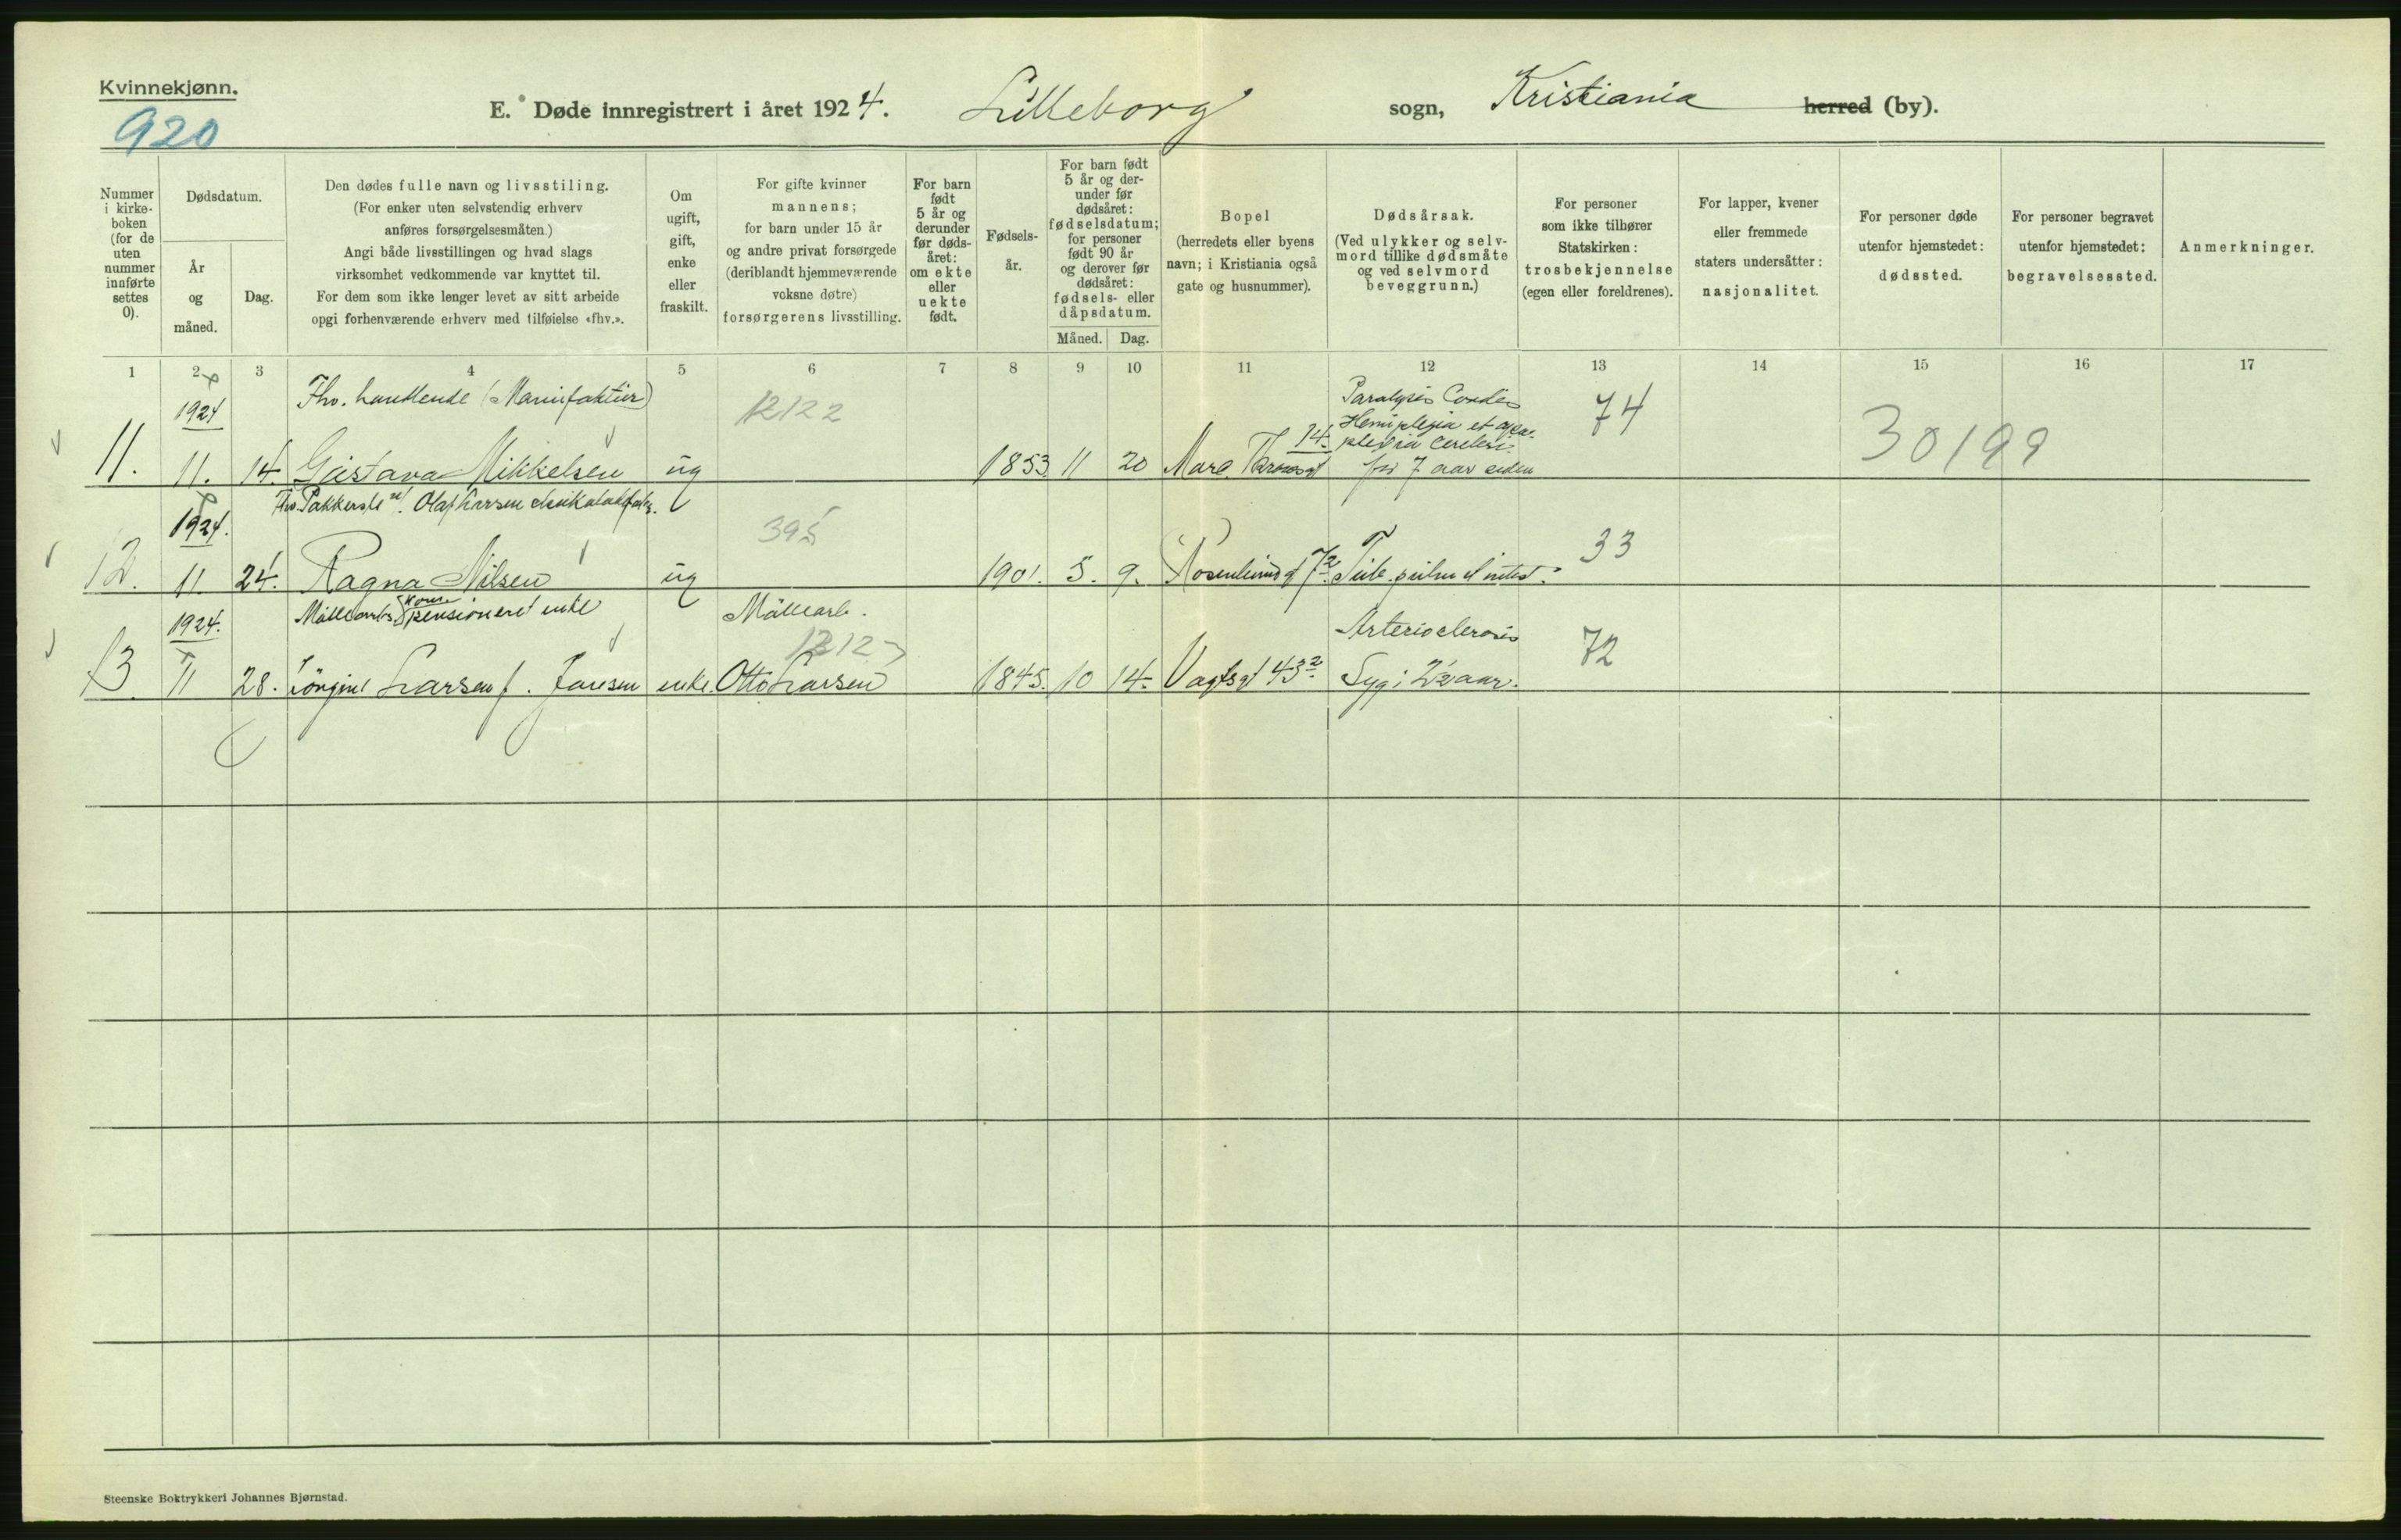 Kvinnekjønn.
920
E. Døde innregistrert i året 1924. Lilleborg sogn, Kristiania herred (by).
Nummer i kirke-boken (for de uten nummer innførte settes 0).
Dødsdatum.
År og måned.
Dag.
Den dødes fulle navn og livsstiling.
(For enker uten selvstendig erhverv
anføres forsørgelsesmåten.)
Angi både livsstillingen og hvad slags
virksomhet vedkommende var knyttet til.
For dem som ikke lenger levet av sitt arbeide
opgi forhenværende erhverv med tilføielse «fhv.».
Om ugift, gift, enke eller fraskilt.
For gifte kvinner
mannens;
for barn under 15 år
og andre privat forsørgede
(deriblandt hjemmeværende
voksne døtre)
forsørgerens livsstilling.
For barn født 5 år og derunder før døds-året: om ekte eller uekte født.
Fødsels-år.
For barn født 5 år og der-under før dødsåret: fødselsdatum; for personer født 90 år og derover før dødsåret: fødsels- eller dåpsdatum.
Måned. Dag.
Bopel
(herredets eller byens
navn; i Kristiania også
gate og husnummer).
Dødsårsak.
(Ved ulykker og selv-
mord tillike dødsmåte
og ved selvmord
beveggrunn.)
For personer
som ikke tilhører
Statskirken:
trosbekjennelse
(egen eller foreldrenes).
For lapper, kvener
eller fremmede
staters undersåtter:
nasjonalitet.
For personer døde
utenfor hjemstedet:
dødssted.
For personer begravet
utenfor hjemstedet:
begravelsessted.
Anmerkninger.
1 2 3 4 5 6 7 8 9 10 11 12 13 14 15 16 17
1924 Fhv. handlende (Manufaktur) 12122 Paralysis Cordis 74
Hemiplegia et apo-
plexia cerebri 30199
11. 11. 14. Gustava Mikkelsen ug 1853 11 20 14. for 7 aar siden
1924. Fhv. Olaf Larsen 395 33
12. 11. 24. Ragna Nilsen ug 1901. 5. 9. Tub. pulm et intest.
1924. kom. pensioneret enke Møllearb. Arteriosclerosis 72
1212
13. 11 28. Jörgine Larsen f. Jansen enke. Otto Larsen 1845. 10 14. Vogtsgt 43² Syg i 2½ aar.
Steenske Boktrykkeri Johannes Bjørnstad.